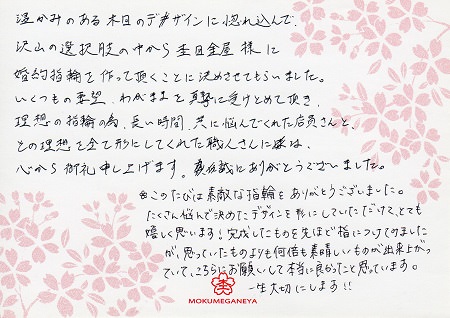 温かみのある木目のデザインに惚れ込んで、
沢山の選択肢の中から杢目金屋様に
婚約指輪を作って頂くことに決めさせてもらいました。
いくつもの要望、わがままを真摯に受けとめて頂き、
理想の指輪の為、長い時間、共に悩んでくれた店員さんと、
その理想を全て形にしてくれた職人さんに様は、
心から御礼申し上げます。誠にありがとうございました。
※このたびは素敵な指輪をありがとうございました。
たくさん悩んで決めたデザインを形にしていただけて、とても
嬉しく思います！完成したものを先ほど指につけてみました
が、思っていたものよりも何倍も素晴しいものが出来上がっ
ていて、こちらにお願いして本当に良かったと思っています。
一生大切にします！！
MOKUMEGANEYA